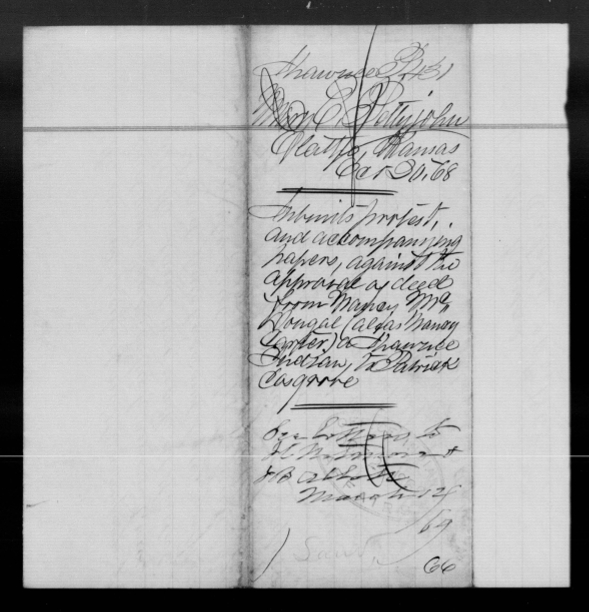 Shawnee P. 431
Mary E. Pattyjohn
Olathe, Kansas
Oct 30, 68
Submits protest,
and accompanying
papers, against the
approval of deed
from Nancy Mc
Dougal (alias Nancy
Carter) a Shawnee
Indian, to Patrick
Cosgrove
See Letters to
&
March 12
/69
66